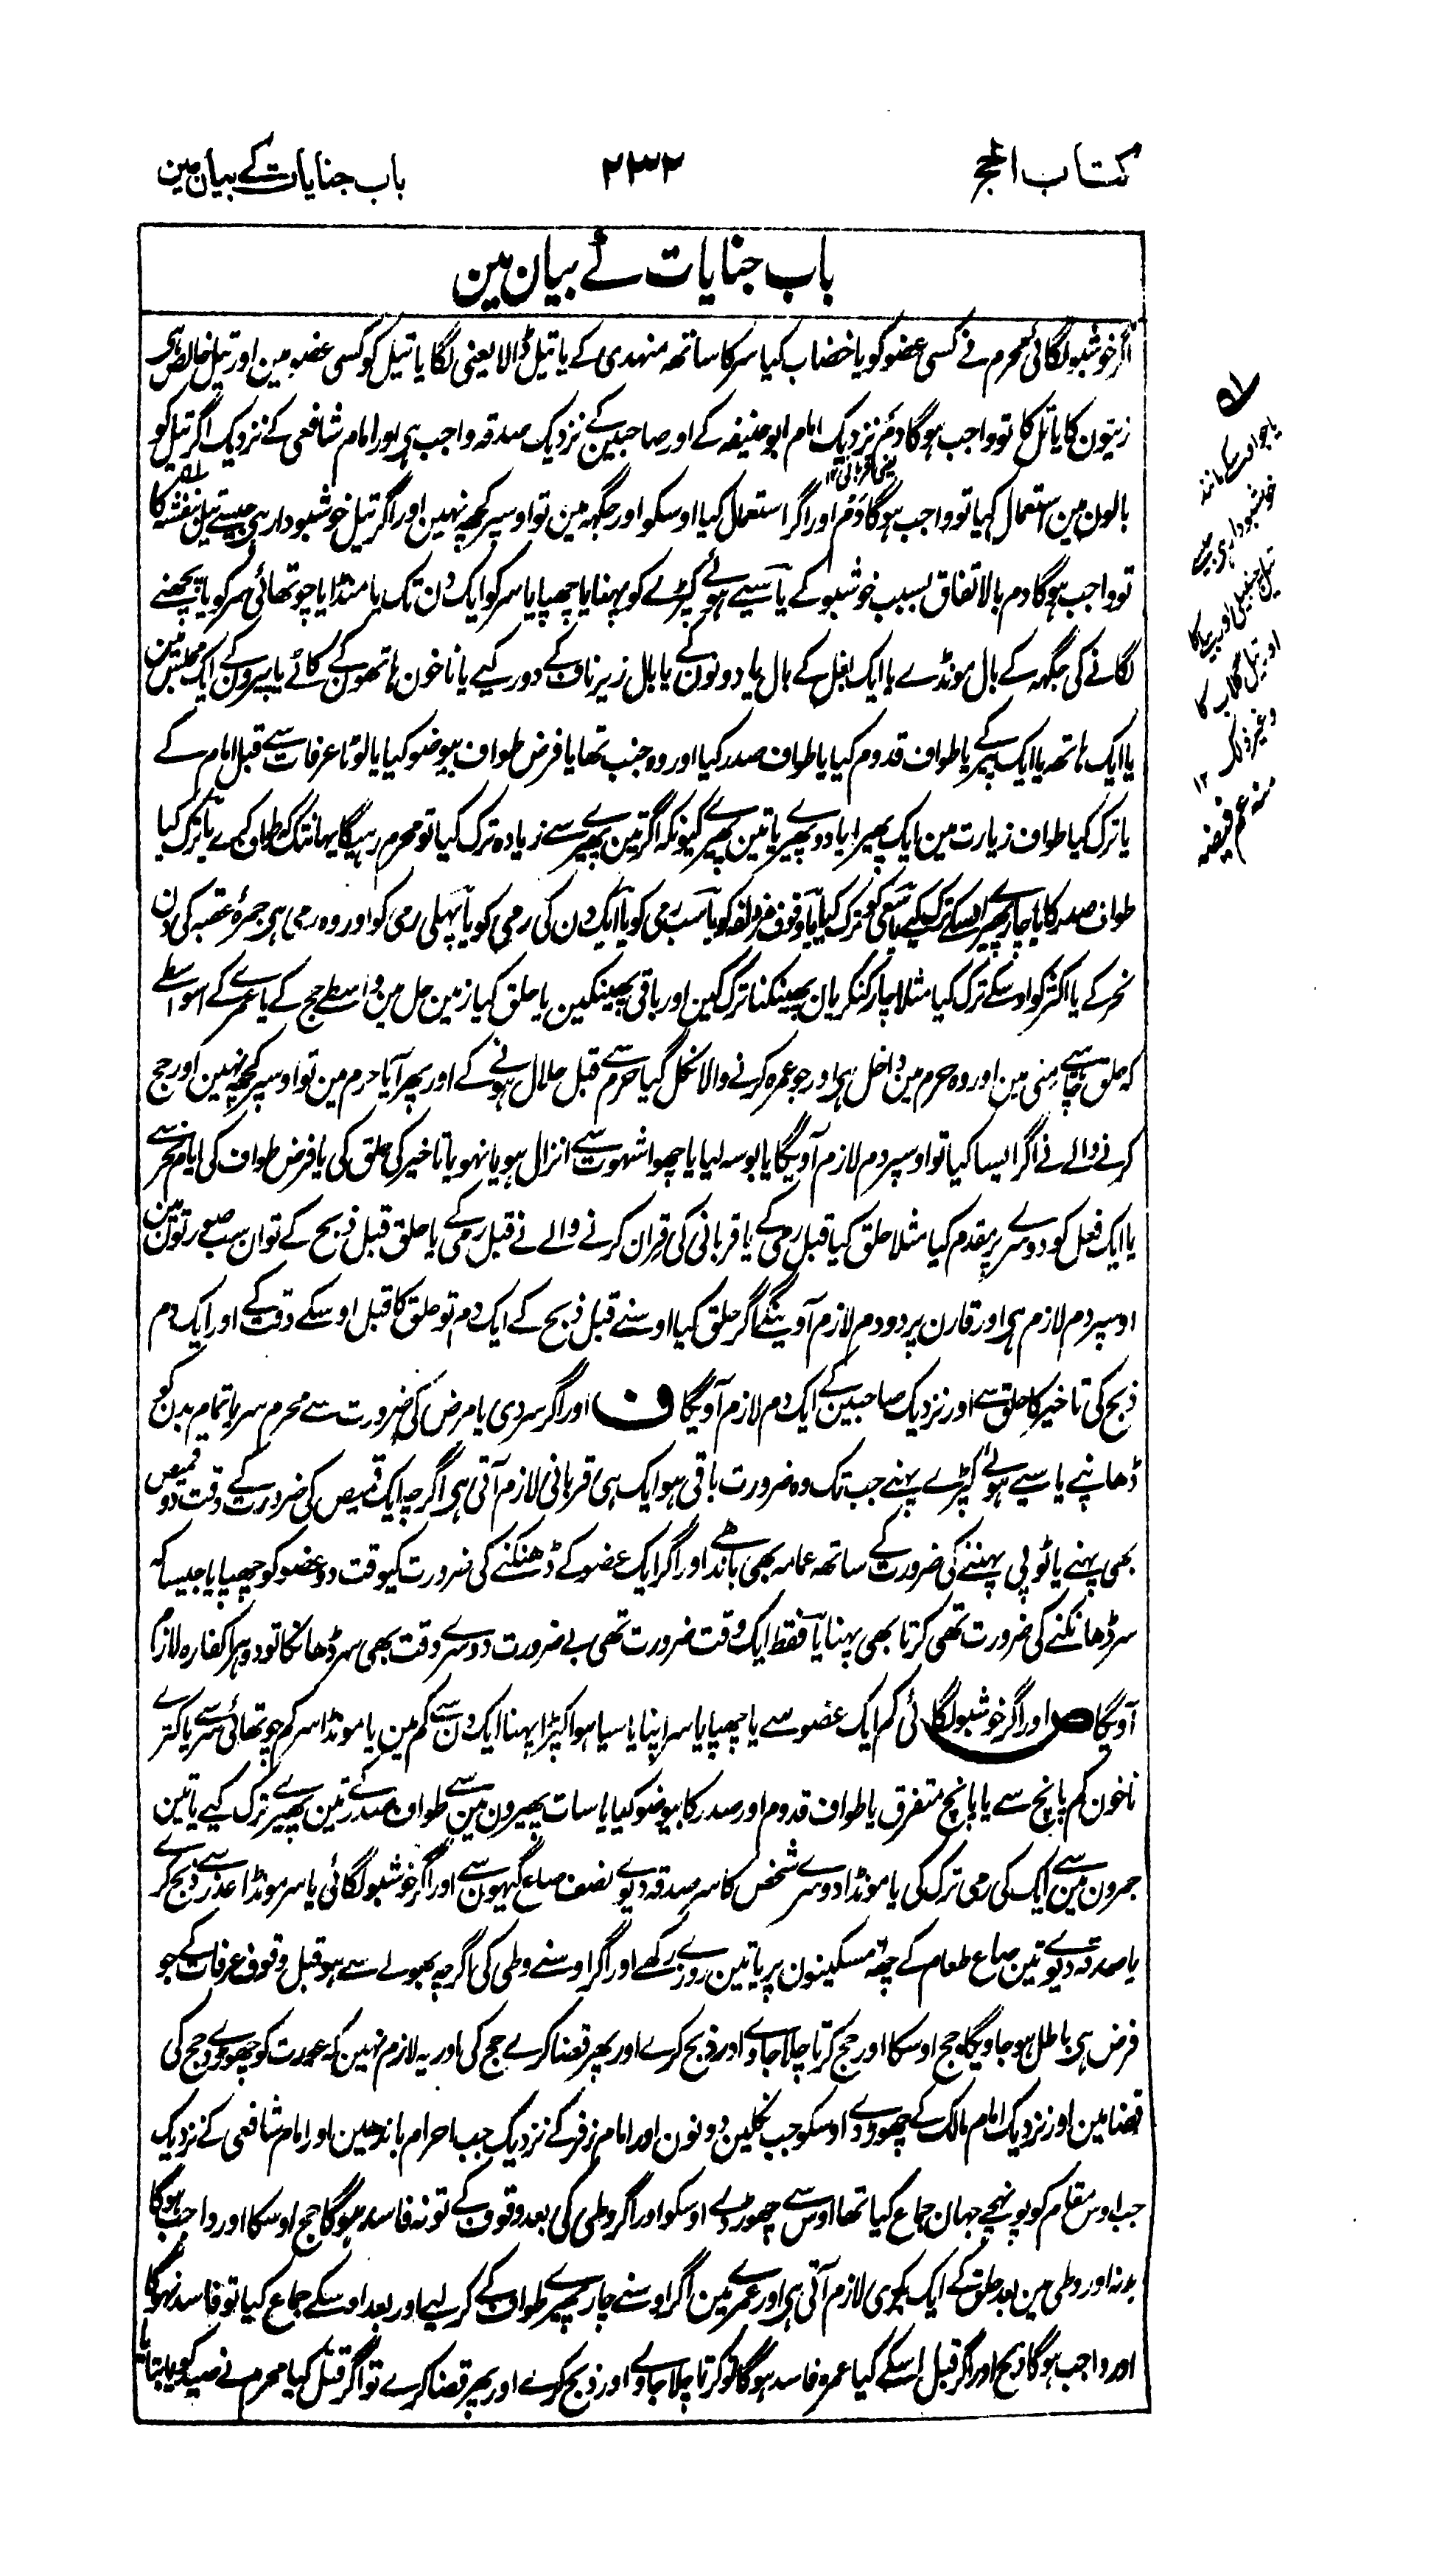 کتاب الحج
۲۳۲
باب جنایات کے بیان مین
باب جنایات کے بیان مین
اگر خوشبو لگائی محرم نے کسی عضو کو یا خضاب کیا سر کا ساتھ منہدی کے یا تیل ڈالا یعنی لگایا تیل کو کسی عضو مین اور تیل خالص ہی
زیتون کا یا تل کا تو واجب ہوگا دم نزدیک امام ابو حنیفہ کے اور صاحبین کے نزدیک صدقہ واجب ہی اور امام شافعی کے نزدیک اگر تیل کو
بالون مین استعمال کیا تو واجب ہوگا دم اور اگر استعمال کیا اوسکو اور جگہہ مین تو اوسپر کچھہ نہین اور اگر تیل خوشبودار ہی جیسے تیل بنفشہ کا
یعنی قربانی ۱۲
تو واجب ہوگا دم بالاتفاق بسبب خوشبو کے یا سیے ہوئے کپڑے کو پہنا یا چھپایا سر کو ایک دن تک یا منڈایا چوتھائی سر کو یا پچھنے
لگانے کی جگہہ کے بال مونڈے یا ایک بغل کے بال یا دونون کے یا بال زیر ناف کے دور کیے یا ناخون ہاتھون کے کاٹے یا پیرون کے ایک مجلس مین
یا ایک ہاتھ یا ایک پیر کے یا طواف قدوم کیا یا طواف صدر کیا اور وہ جنب تھا یا فرض طواف بیوضو کیا یا لوٹا عرفات سے قبل امام کے
یا ترک کیا طواف زیارت مین ایک پھیرا یا دو پھیرے یا تین پھیرے کیونکہ اگر تین پھیرے سے زیادہ ترک کیا تو محرم رہیگا یہانتک کہ طواف کرے یا ترک کیا
طواف صدر کا یا چار پھیرے اسکے ترک کیے یا سعی کو ترک کیا یا وقوف مزدلفہ کو یا سب رمی کو یا ایک دن کی رمی کو یا پہلی رمی کو اور وہ رمی ہی جمرۂ عقبہ کی دن
نحر کے یا اکثر کو اوسکے ترک کیا مثلا چار کنکریان پھینکنا ترک کین اور باقی پھینکین یا حلق کیا زمین حل مین واسطے حج کے یا عمرے کے اسواسطے
کہ حلق چاہیے منی مین اور وہ حرم مین داخل ہی اور جو عمرہ کرنے والا نکل گیا حرم سے قبل حلال ہونے کے اور پھر آیا حرم مین تو اوسپر کچھہ نہین اور حج
کرنے والے نے اگر ایسا کیا تو اوسپر دم لازم آویگا یا بوسہ لیا یا چھوا شہوت سے انزال ہو یا نہو یا تاخیر کی حلق کی یا فرض طواف کی ایام نحر سے
یا ایک فعل کو دوسرے پر مقدم کیا مثلا حلق کیا قبل رمی کے یا قربانی کی قران کرنے والے نے قبل رمی کے یا حلق قبل ذبح کے تو ان سب صورتون مین
اوسپر دم لازم ہی اور قارن پر دو دم لازم آوینگے اگر حلق کیا اوسنے قبل ذبح کے ایک دم تو حلق کا قبل اوسکے وقت کے اور ایک دم
ذبح کی تاخیر کا حلق سے اور نزدیک صاحبین کے ایک دم لازم آویگا ف اور اگر سردی یا مرض کی ضرورت سے محرم سر یا تمام بدن کو
ڈھانپے یا سیے ہوئے کپڑے پہنے جب تک وہ ضرورت باقی ہو ایک ہی قربانی لازم آتی ہی اگرچہ ایک قمیص کی ضرورت کے وقت دو قمیص
بھی پہنے یا ٹوپی پہننے کی ضرورت کے ساتھ عمامہ بھی باندھے اور اگر ایک عضو کے ڈھنکنے کی ضرورت کیوقت دو عضو کو چھپایا جیسا کہ
سر ڈھانکنے کی ضرورت تھی کرتا بھی پہنا یا فقط ایک وقت ضرورت تھی بے ضرورت دوسرے وقت بھی سر ڈھانکا تو دوہرا کفارہ لازم
آویگا ص اور اگر خوشبو لگائی کم ایک عضو سے یا چھپایا سر اپنا یا سیا ہوا کپڑا پہنا ایک دن سے کم مین یا مونڈا سر کم چوتھائی سر سے یا کترے
ناخون کم پانچ سے یا پانچ متفرق یا طواف قدوم اور صدر کا بیوضو کیا یا سات پھیرون مین سے طواف صدر کے تین پھیرے ترک کیے یا تین
جمرون مین سے ایک کی رمی ترک کی یا مونڈا دوسرے شخص کا سر صدقہ دیوے نصف صاع گیہون سے اور اگر خوشبو لگائی یا سر مونڈا عذر سے ذبح کرے
یا صدقہ دیوے تین صاع طعام کے چھہ مسکینون پر یا تین روزے رکھے اور اگر اوسنے وطی کی اگرچہ بھولے سے ہو قبل وقوف عرفات کے جو
فرض ہی باطل ہو جاویگا حج اوسکا اور حج کرتا چلا جاوے اور ذبح کرے اور پھر قضا کرے حج کی اور یہ لازم نہین کہ عورت کو چھوڑ دے حج کی
قضا مین اور نزدیک امام مالک کے چھوڑ دے اوسکو جب نکلین دونون اور امام زفر کے نزدیک جب احرام باندھین اور امام شافعی کے نزدیک
جب اوس مقام کو پہونچے جہان جماع کیا تھا اوس سے چھوڑ دے اوسکو اور اگر وطی کی بعد وقوف کے تو نہ فاسد ہوگا حج اوسکا اور واجب ہوگا
بدنہ اور وطی مین بعد حلق کے ایک بکری لازم آتی ہی اور عمرے مین اگر اوسنے چار پھیرے طواف کے کر لیے اور بعد اوسکے جماع کیا تو فاسد نہوگا
اور واجب ہوگا ذبح اور اگر قبل اسکے کیا عمرہ فاسد ہوگا تو کرتا چلا جاوے اور ذبح کرے اور پھر قضا کرے تو اگر قتل کیا محرم نے صید کو یا بتایا
یا جو اوسکے مانند
خوشبودار ہی جیسے
تیل چنبیلی اور بیلے کا
اور تیل گلاب کا
وغیر ذلک ۱۲
منہ عم فیضہ